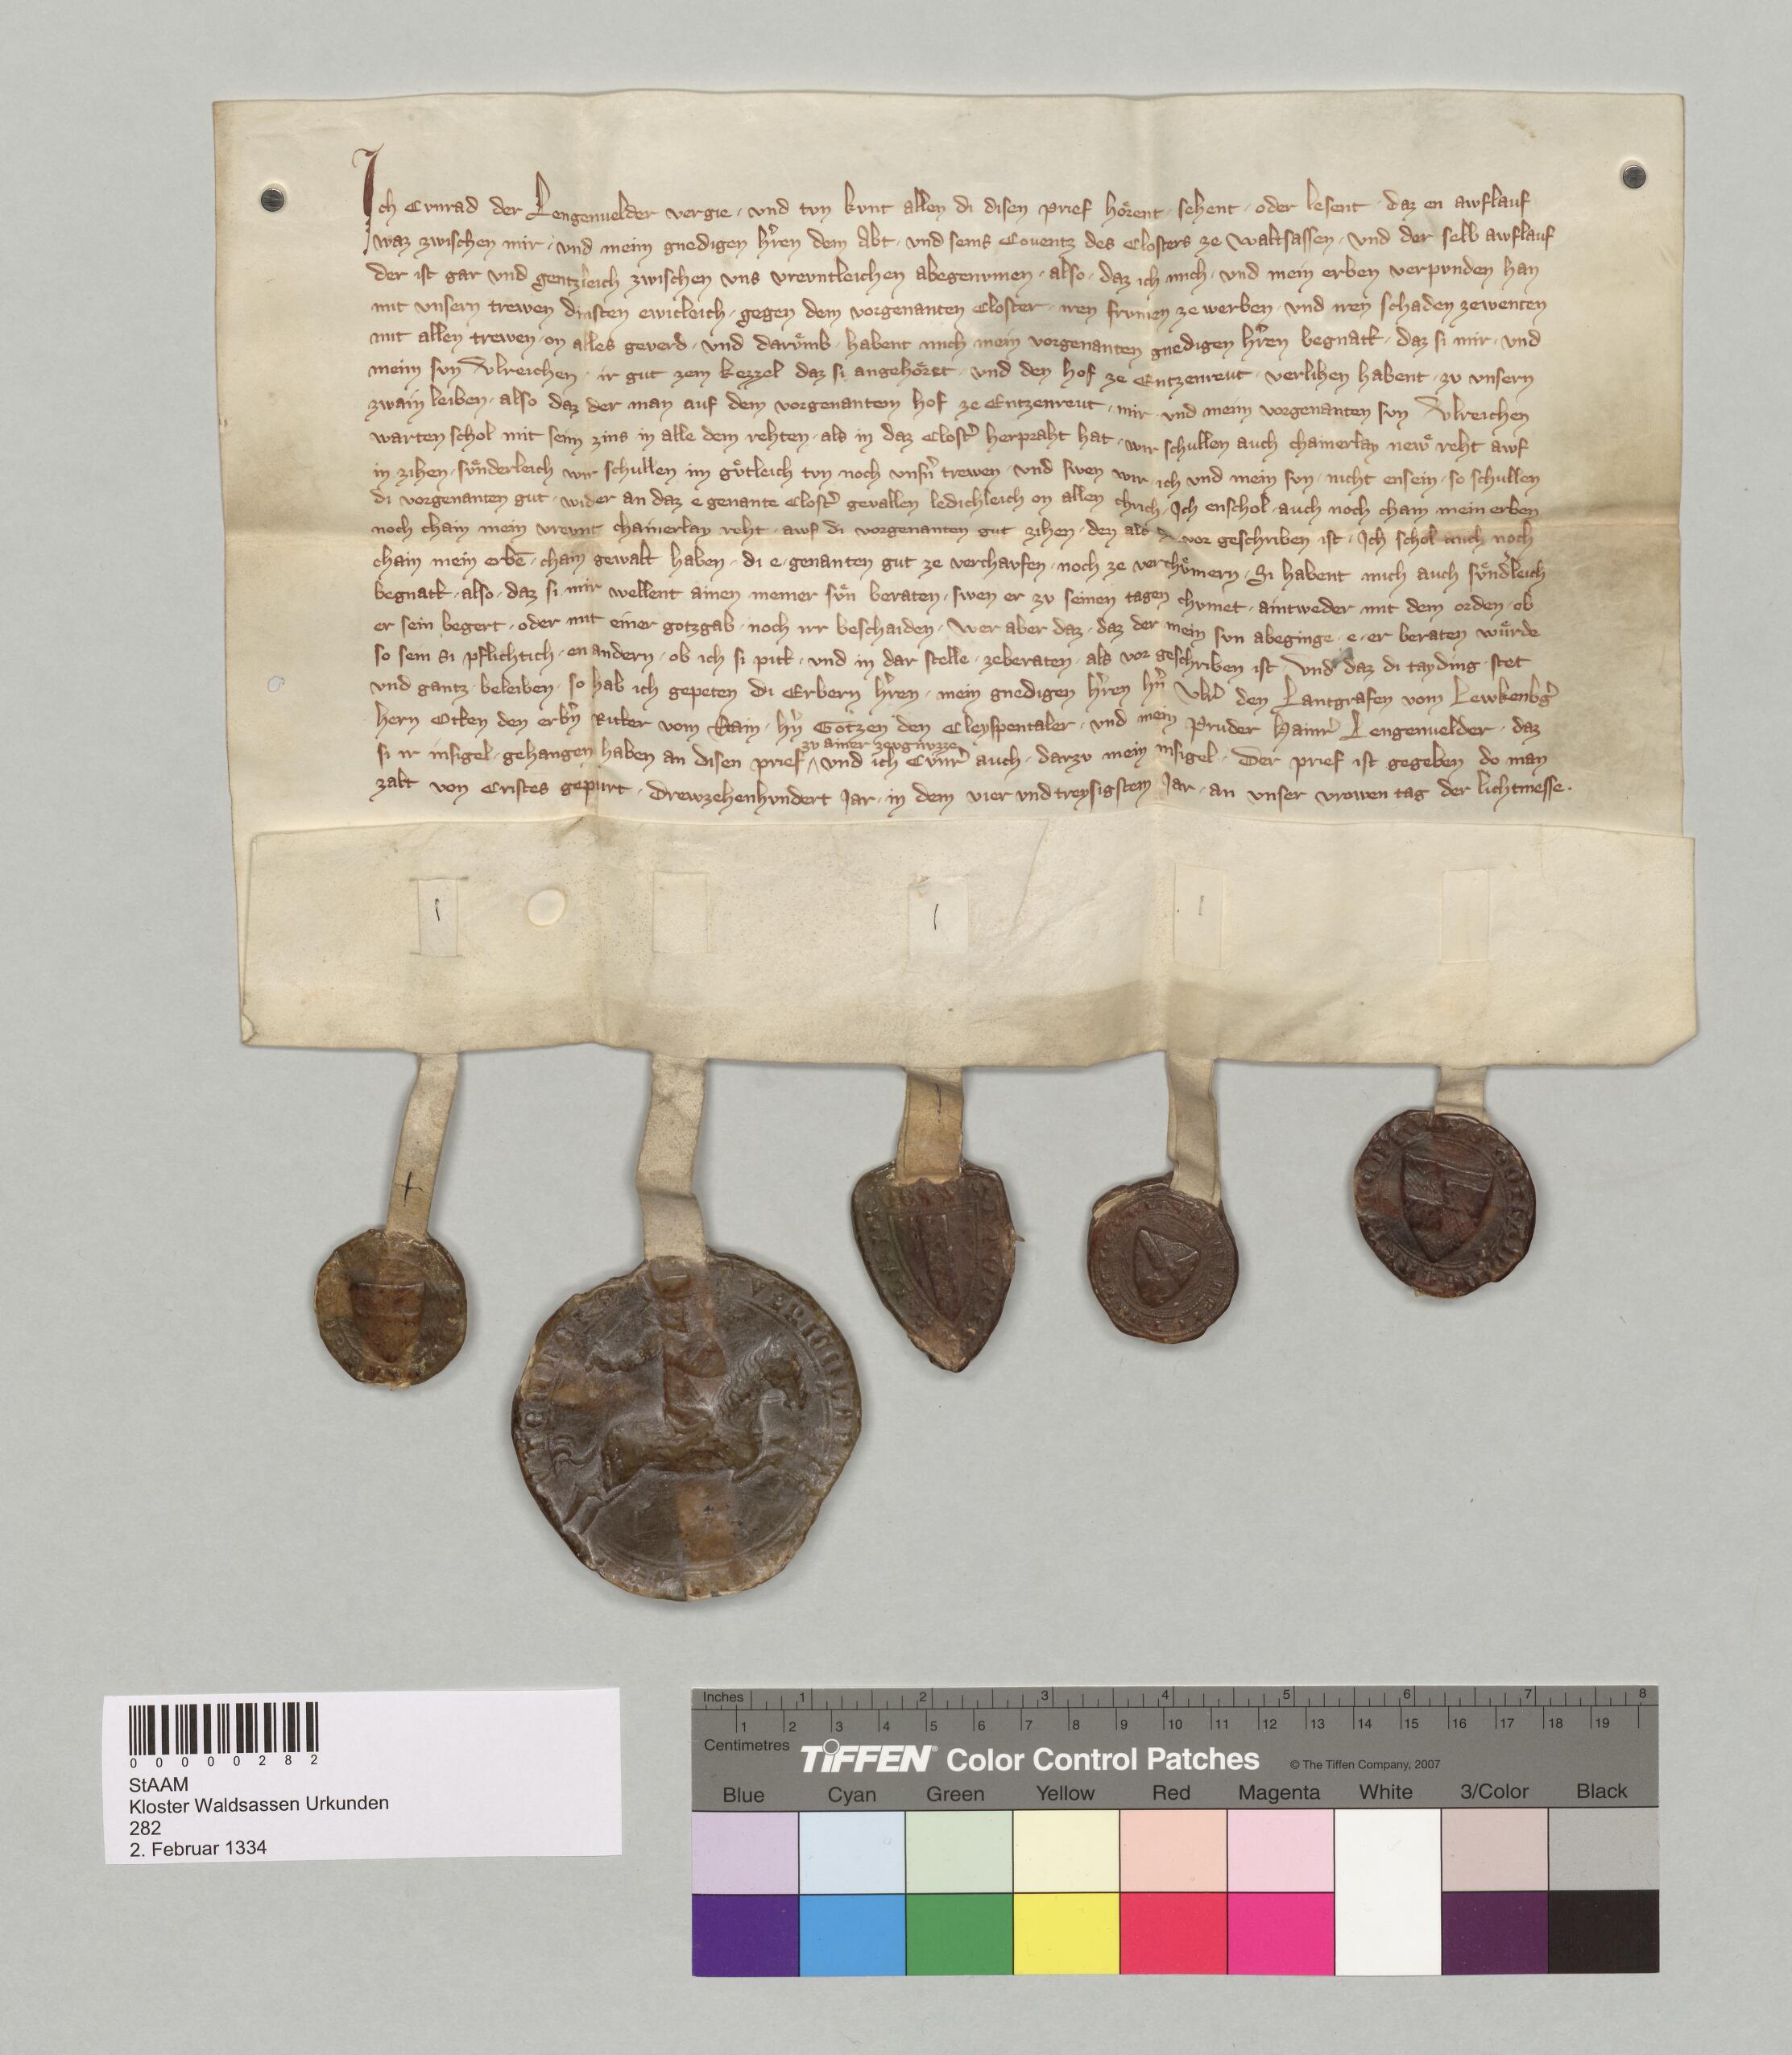 Ich Cvnrad der Lengenuelder vergie · vnd tvn kvnt allen di disen prief hoͤrent · sehent · oder lesent · daz en awflauf
waz zwischen mir · vnd meim gnedigen hr̃en dem Abt · vnd seins Couentz des Closters ze Waltsassen · vnd der selb awflauf
der ist gar vnd gentzleich zwischen vns vrevntleichen abegenvmen · also · daz ich mich · vnd mein erben verpvnden han
mit vnsern trewen dinsten ewicleich · gegen dem vorgenanten Closter · iren frvmen ze werben · vnd iren schaden zewenten
mit allen trewen · on alles geverd · vnd darvͤmb · habent mich mein vorgenanten gnedigen hr̃en begnatt · daz si mir · vnd
meim svn Vlreichen · ir gut zem kezzel daz si angehoͤret · vnd den hof ze Entzenreut · verlihen habent · zv vnsern
zwain leiben · also daz der man auf dem vorgenantem hof ze Entzenreut · mir · vnd meim vorgenanten svn Vlreichen
warten schol mit seim zins in alle dem rehten · als in daz Clost̃ herpraht hat · wir schullen auch chainerlay newͤ reht awf
in zihen · svͤnderleich wir schullen im gvͤtleich tvn noch vnsñ trewen · vnd swen wir · ich vnd mein svn · nicht ensein · so schullen
di vorgenanten gut · wider an daz e genante Clost̃ gevallen ledichleich on allen chrich · Ich enschol · auch noch chain mein erben
noch chain mein vrevnt chainerlay reht · awf di vorgenanten gut zihen · den als vor geschriben ist · Ich schol auch noch
chain mein erbē · chain gewalt haben · di e · genanten gut ze verchavfen · noch ze verchvͤmern · Si habent mich auch svͤndleich
begnatt · also · daz si mir wellent ainen meiner svͤn beraten · swen er zv seinen tagen chvmet · aintweder · mit dem orden · ob
er sein begert · oder mit einer gotzgab · noch irr beschaiden · Wer aber daz · daz der mein svn abeginge · e · er beraten wuͤrde
so sein si pflichtich · en andern · ob ich si pitt · vnd in dar stelle · zeberaten · als vor geschriben ist Vnd daz di tayding · stet
vnd gantz · beleiben · so hab ich gepeten Di Erbern hr̃en · mein gnedigen hr̃en hñ Vlr̃ den Lantgrafen vom Lewtenbg̃
hern Otten den erbñ Ritter vom Stain · hñ Gotzen den Cleyspentaler · vnd mein Pruder Hainr̃ Lengenuelder · daz
zv ainer zevgnvzze
si ir insigel · gehangen haben an disen prief vnd ich Cvnr̃ auch · darzv mein insigel · Der prief ist gegeben do man
zalt von Cristes gepurt · Drewzehenhvndert Jar · in dem vier vnd treysigstem Jar · an vnser vrowen tag der lichtmesse ·
0000282
StAAM
Kloster Waldsassen Urkunden
282
2. Februar 1334
Inches 1 2 3 4 5 6 7 8
1 2 3 4 5 6 7 8 9 10 11 12 13 14 15 16 17 18 19
Centimetres
TIFFEN® Color Control Patches © The Tiffen Company, 2007
Blue Cyan Green Yellow Red Magenta White 3/Color Black